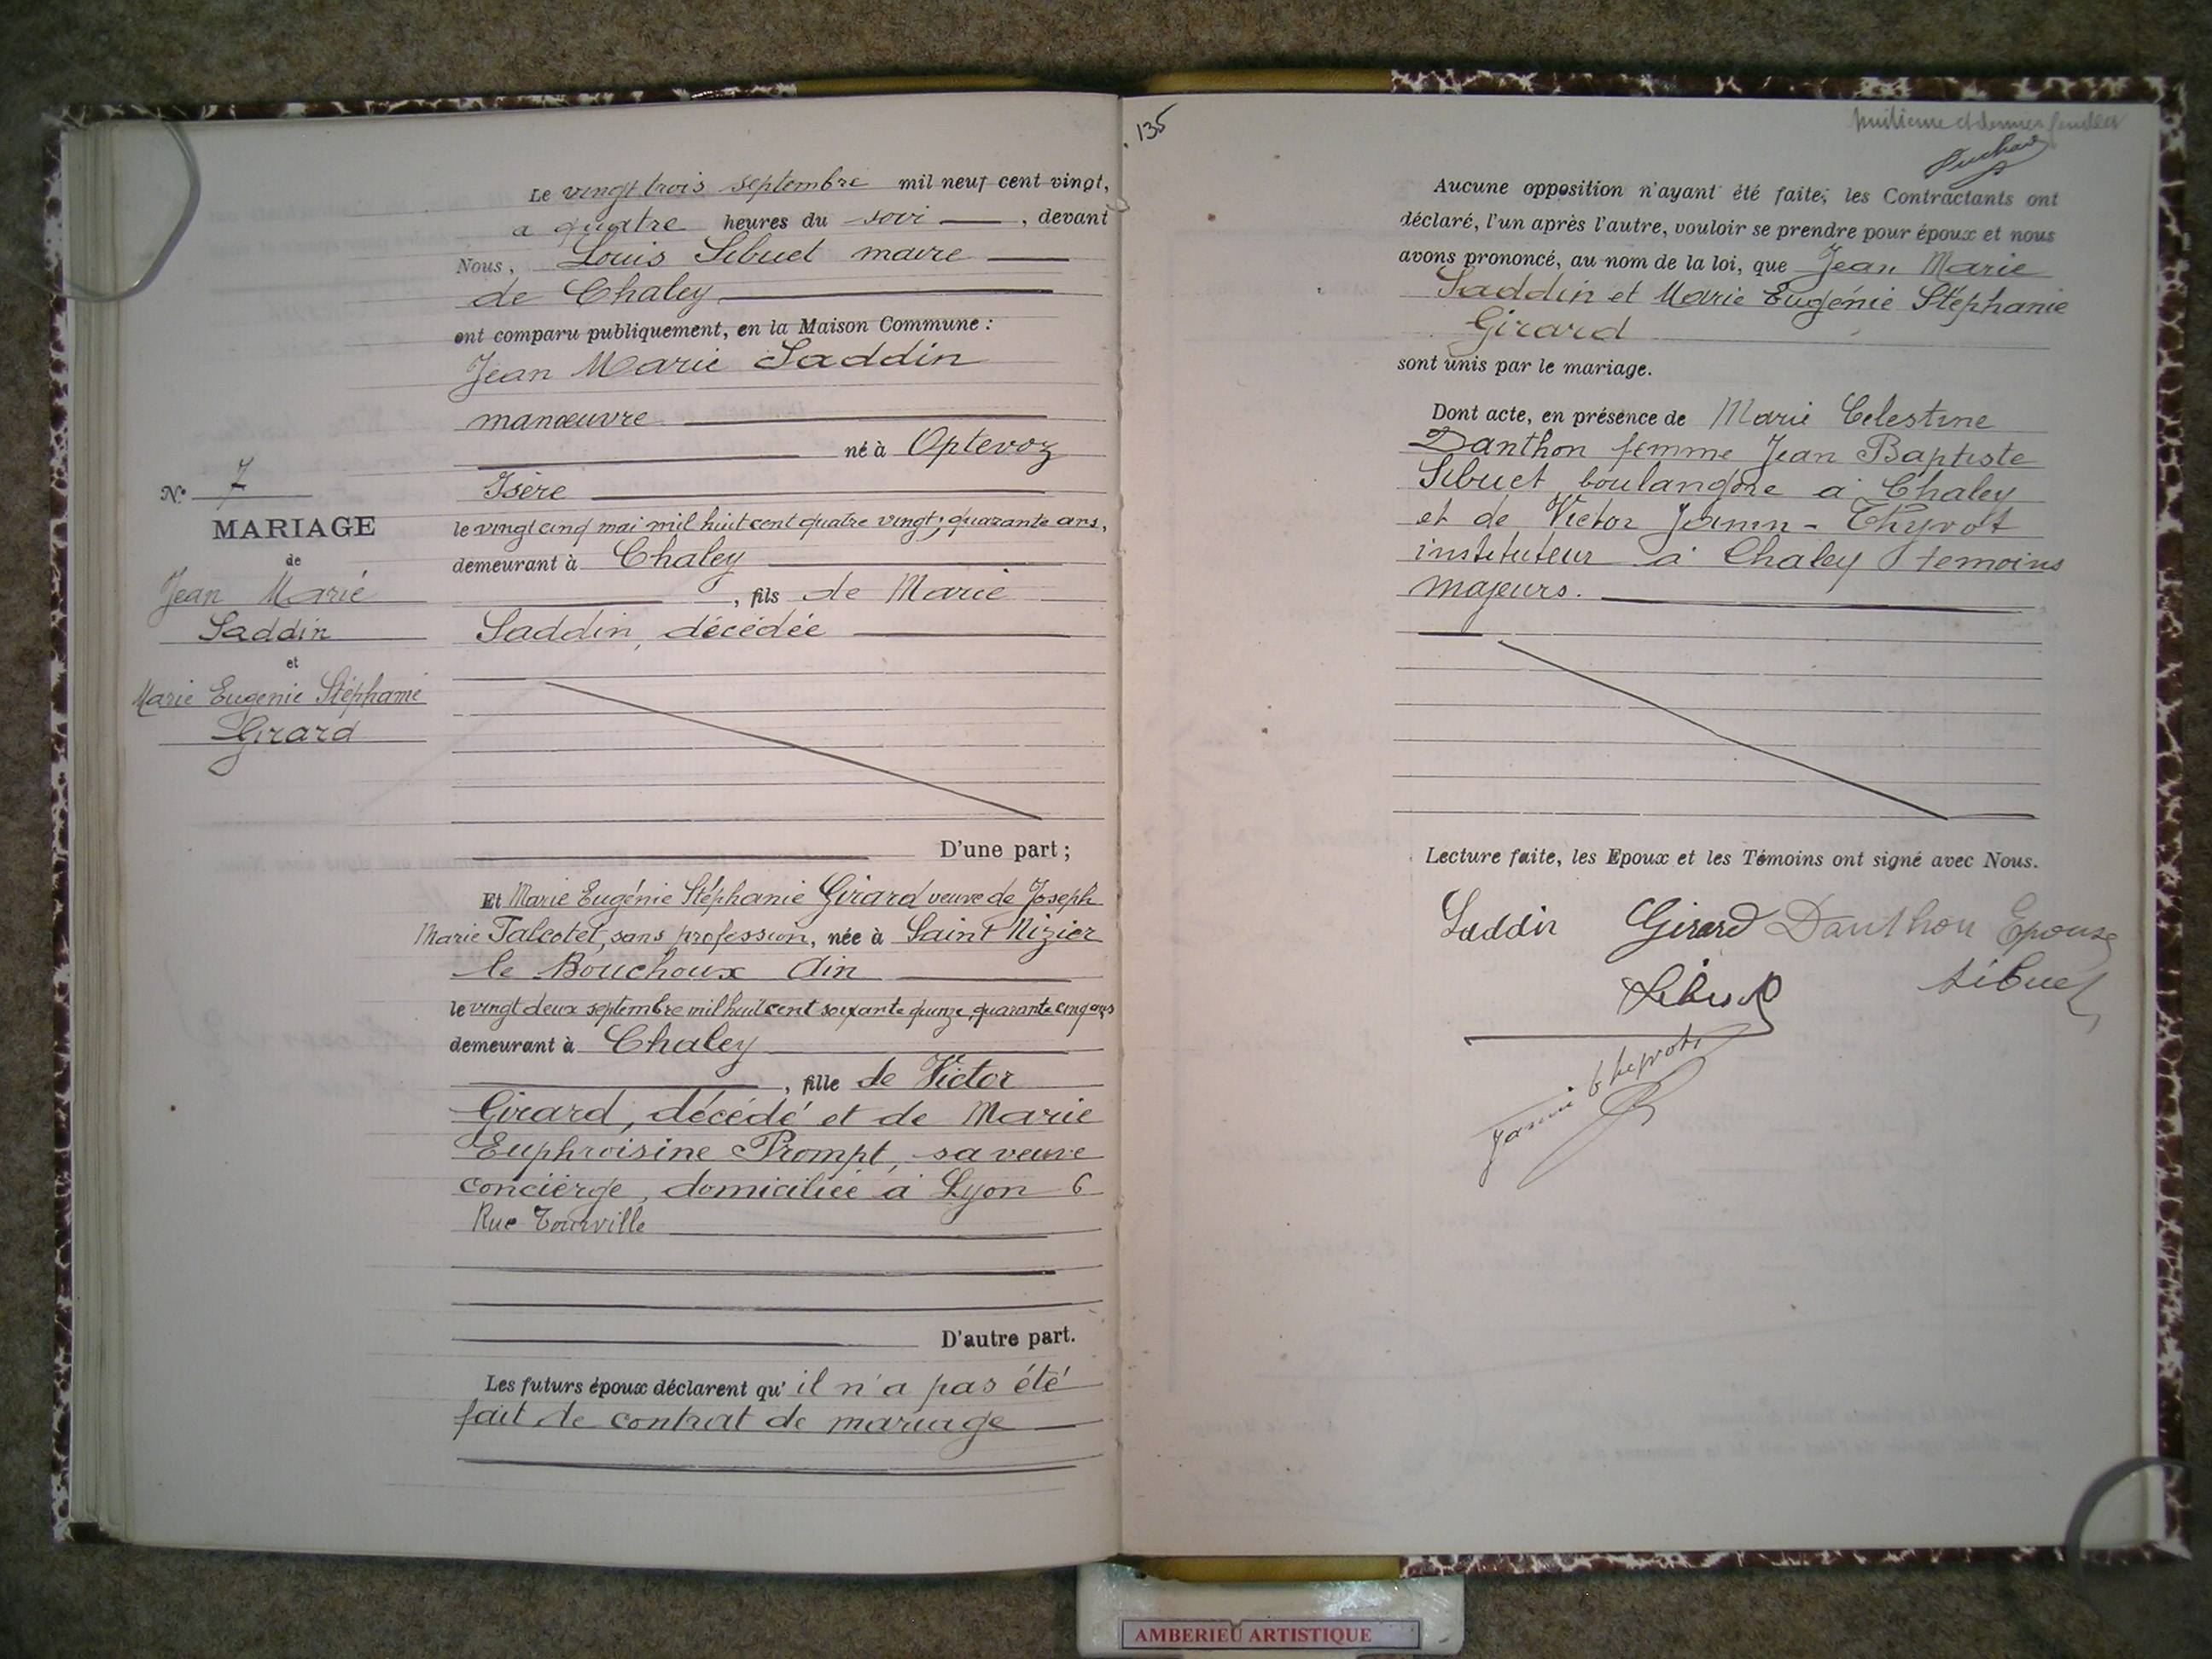 Le vingt trois septembre mil neuf cent vingt,
a quatre heures du soir, devant
Nous, Louis Sibuet maire
de Chaley
ont comparu publiquement, en la Maison Commune :
Jean Marie Saddin
manœuvre
né à Optevoz
Isère
le vingt cinq mai mil huit cent quatre vingt ; quarante ans,
demeurant à Chaley
, fils de Marie
Saddin, décédée
D'une part ;
Et Marie Eugénie Stéphanie Girard veuve de Joseph
Marie Talcotet, sans profession, née à Saint Nizier
le Bouchoux Ain
le vingt deux septembre mil huit cent soixante quinze, quarante cinq ans
demeurant à Chaley
, fille de Victor
Girard, décédé et de Marie
Euphroisine Prompt, sa veuve
concierge, domiciliée à Lyon 6
Rue Tourville
D'autre part.
Les futurs époux déclarent qu' il n'a pas été
fait de contrat de mariage
N° 7
MARIAGE
de
Jean Marie
Saddin
et
Marie Eugenie Stéphanie
Girard
135
huitieme et dernier feuillet
Aucune opposition n'ayant été faite, les Contractants ont
déclaré, l'un après l'autre, vouloir se prendre pour époux et nous
avons prononcé, au nom de la loi, que Jean Marie
Saddin et Marie Eugénie Stéphanie
Girard
sont unis par le mariage.
Dont acte, en présence de Marie Celestine
Danthon femme Jean Baptiste
Sibuet boulangère à Chaley
et de Victor Janin - Thyvot
instituteur à Chaley temoins
majeurs.
Lecture faite, les Epoux et les Témoins ont signé avec Nous.
Saddin Girard Danthon Epouse
Sibuet
Sibuet
AMBERIEU ARTISTIQUE